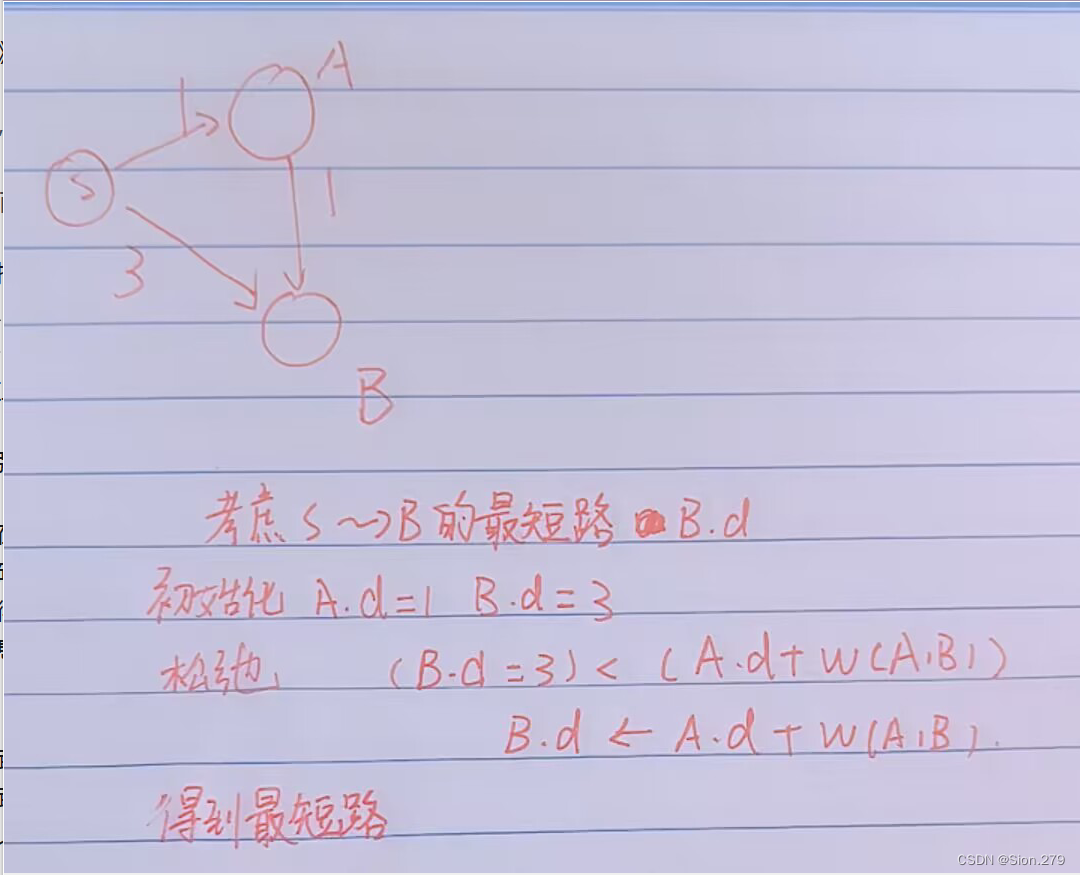 A
1
S
1
3
B
考虑 S ~> B 的最短路 B.d
初始化 A.d=1 B.d=3
松弛 (B.d=3) < (A.d+W(A,B))
B.d ← A.d+W(A,B).
得到最短路
CSDN @Sion.279